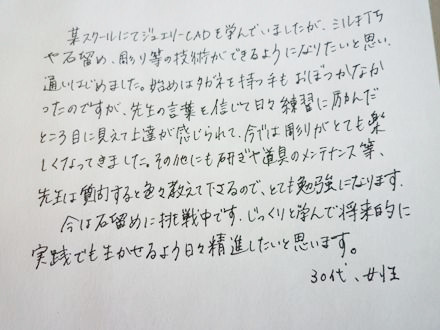 某スクールにてジュエリーCADを学んでいましたが、ミル打ち
や石留め、彫り等の技術ができるようになりたいと思い、
通いはじめました。始めはタガネを持つ手もおぼつかなか
ったのですが、先生の言葉を信じて日々練習に励んだ
ところ目に見えて上達が感じられて、今では彫りがとても楽
しくなってきました。その他にも研ぎや道具のメンテナンス等、
先生は質問すると色々教えて下さるので、とても勉強になります。
今は石留めに挑戦中です。じっくりと学んで将来的に
実践でも生かせるよう日々精進したいと思います。
30代、女性